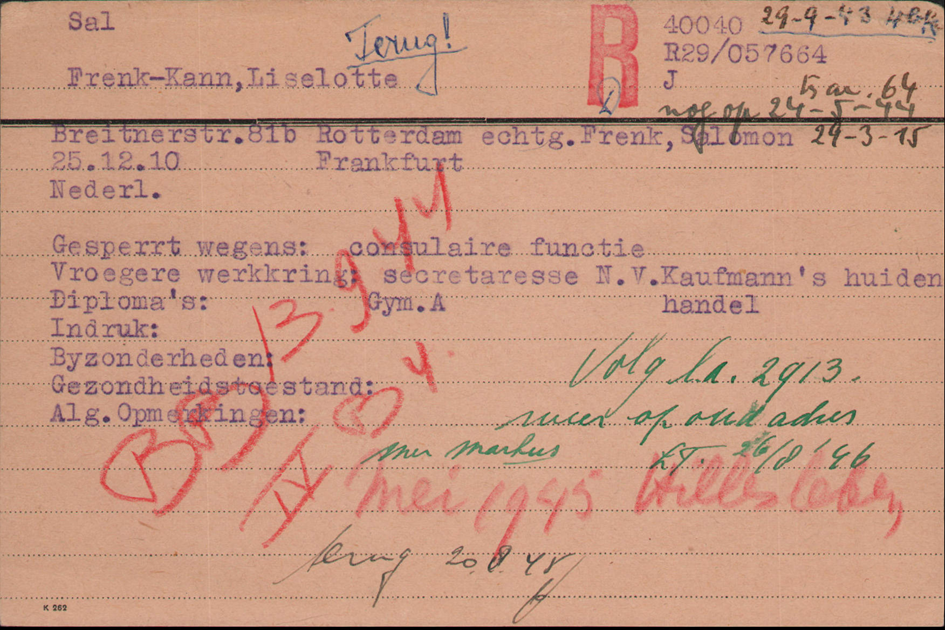 Sal
Terug!
R
40040 29-9-43
R29/057664
Frenk-Kann,Liselotte
J
Bar. 64
nog op 24-5-44
Breitnerstr.81b Rotterdam echtg.Frenk,Salomon 29-3-15
25.12.10 Frankfurt
Nederl.
Gesperrt wegens: consulaire functie
Vroegere werkkring: secretaresse N.V.Kaufmann's huiden
Diploma's: Gym.A handel
Indruk:
Byzonderheden:
Gezondheidstoestand:
Alg.Opmerkingen:
13.9.44
Volg l.a. 2913.
weer op oud adres
26/8 '46
IV B 4.
Mei 1945 Hillesleben,
terug 20.8.45
K 262